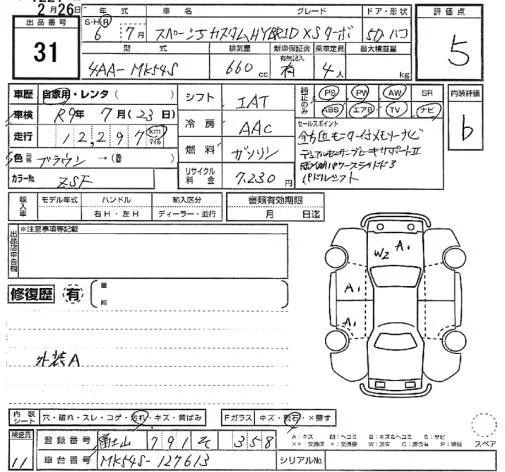 2月26日
出品番号 31
年式 S・H・R 6年 7月
車名 スペーシアカスタムHYBRID XSターボ
グレード
ドア・形状 5D ハコ
評価点 5
型式 4AA-MK54S
排気量 660 cc
新車保証書 有無記入 有
乗車定員 4人
最大積載量 kg
車歴 自家用・レンタ( )
車検 R9年 7月(23日)
走行 12,297 km マイル
色 ブラウン →(替 )
カラーNo. ZSF
シフト IAT
冷房 AAC
燃料 ガソリン
リサイクル料金 7,230円
純正のみ PS PW AW SR
ABS エアB TV ナビ
セールスポイント
全方位モニター付メモリーナビ
デュアルセンサーブレーキサポートII
両側パワースライドドア
パドルシフト
内装評価 b
輸入車 モデル年式 ハンドル 輸入区分
年 右H・左H ディーラー・並行
書類有効期限 月 日迄
出品店申告欄 ※注意事項等記載
修復歴 有
箇所
外装A
W2 A1
A1
A1
内装シート 穴・破れ・スレ・コゲ・汚れ・キズ・黄ばみ
Fガラス キズ・飛石・×要す
検査員 11
登録番号 富士山 791 そ 358
車台番号 MK54S-127613
シリアルNo.
A:キズ U:ヘコミ B:キズ&ヘコミ S:サビ
スペア